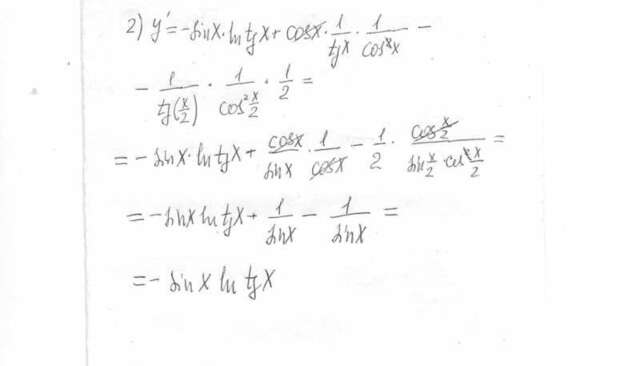 2) y' = -sinx · ln tgx + cosx · 1/tgx · 1/cos²x -
- 1/tg(x/2) · 1/cos² x/2 · 1/2 =
= -sinx · ln tgx + cosx/sinx · 1/cosx - 1/2 · cos x/2 / (sin x/2 · cos² x/2) =
= -sinx ln tgx + 1/sinx - 1/sinx =
= -sinx ln tgx